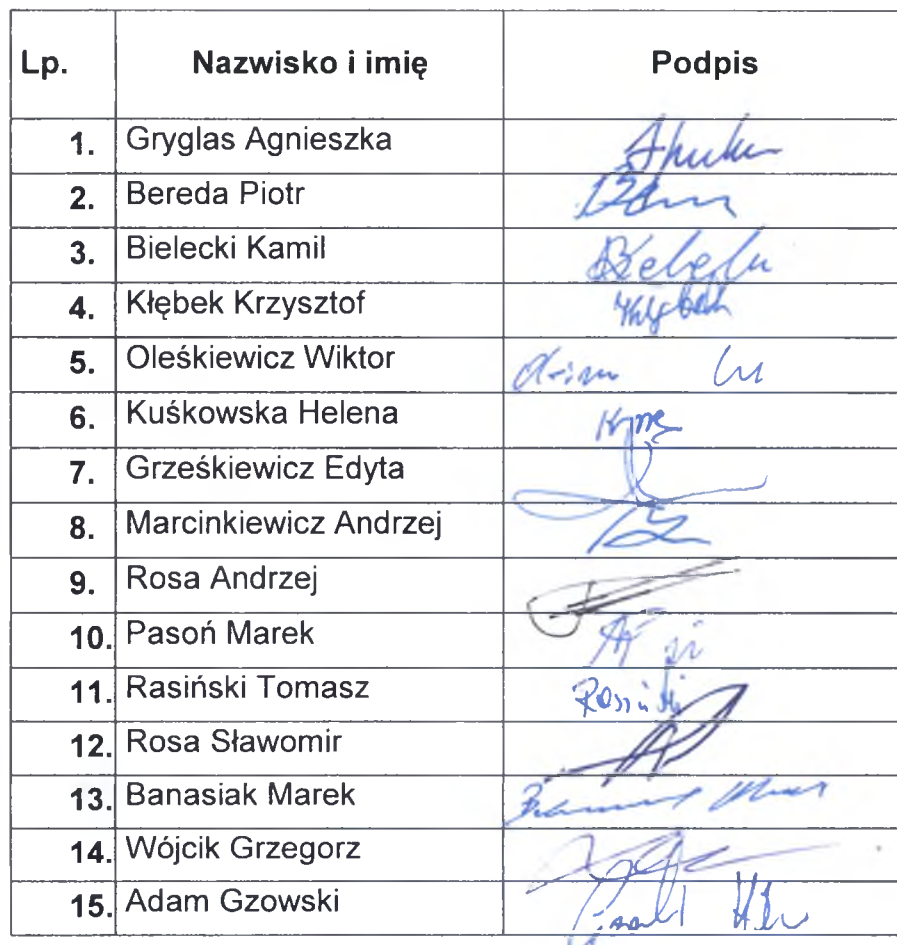 Lp. Nazwisko i imię Podpis
1. Gryglas Agnieszka
2. Bereda Piotr
3. Bielecki Kamil
4. Kłębek Krzysztof
5. Oleśkiewicz Wiktor
6. Kuśkowska Helena
7. Grześkiewicz Edyta
8. Marcinkiewicz Andrzej
9. Rosa Andrzej
10. Pasoń Marek
11. Rasiński Tomasz
12. Rosa Sławomir
13. Banasiak Marek
14. Wójcik Grzegorz
15. Adam Gzowski